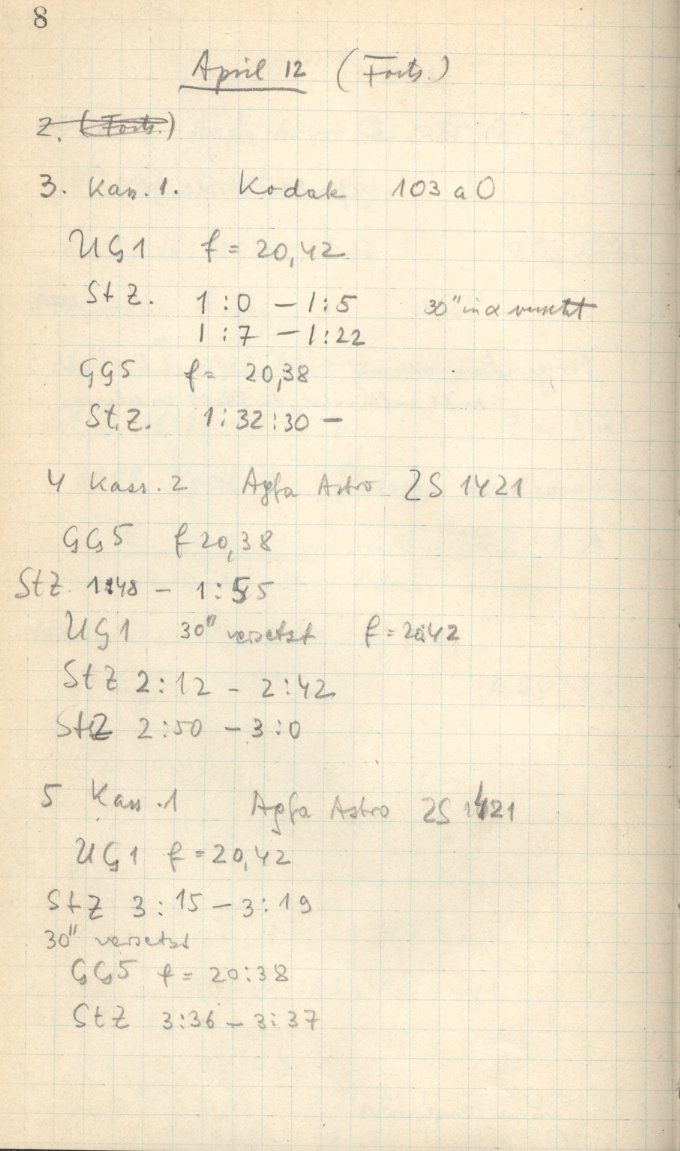 8
April 12 (Forts.)
2. (Forts.)
3. Kass. 1. Kodak 103 a O
UG1 f = 20,42
St Z. 1:0 – 1:5 30" in α versetzt
1:7 – 1:22
GG5 f = 20,38
St.Z. 1:32:30 –
4 Kass. 2 Agfa Astro ZS 1421
GG5 f 20,38
StZ. 1:48 – 1:55
UG1 30" versetzt f = 20:42
StZ 2:12 – 2:42
StZ 2:50 – 3:0
5 Kass. 1 Agfa Astro ZS 1421
UG1 f = 20,42
StZ 3:15 – 3:19
30" versetzt
GG5 f = 20:38
StZ 3:36 – 3:37